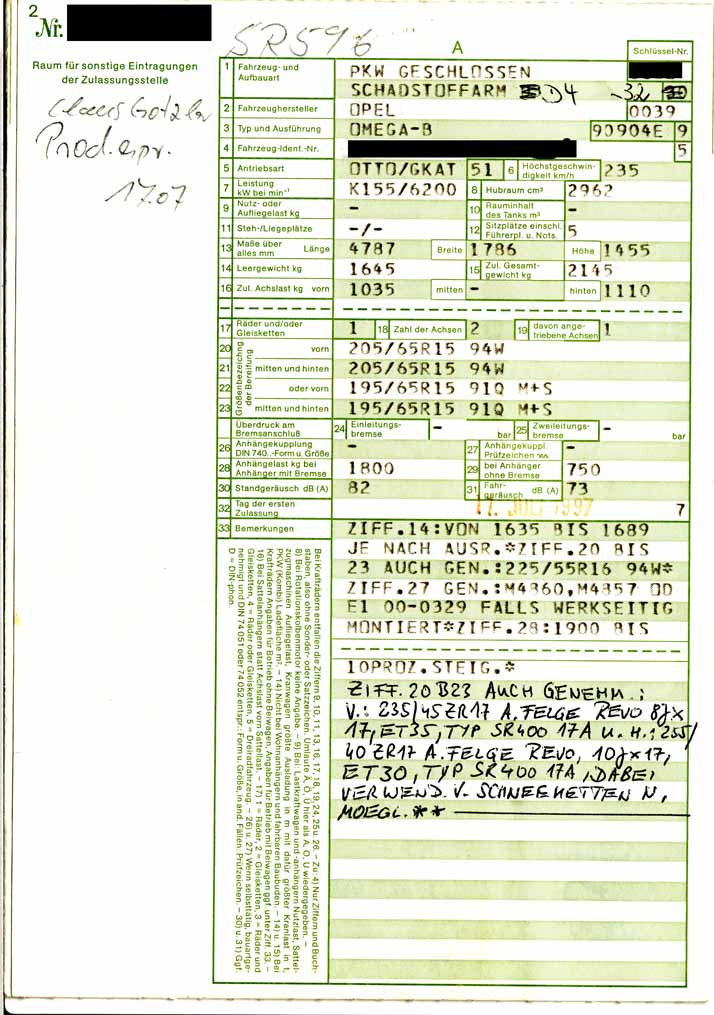 2
Nr.
SR596
A
Schlüssel-Nr.
Raum für sonstige Eintragungen
der Zulassungsstelle
Prod.
17.07
1 Fahrzeug- und Aufbauart PKW GESCHLOSSEN
SCHADSTOFFARM D4 -32
2 Fahrzeughersteller OPEL 0039
3 Typ und Ausführung OMEGA-B 90904E 9
4 Fahrzeug-Ident.-Nr. 5
5 Antriebsart OTTO/GKAT 51 6 Höchstgeschwindigkeit km/h 235
7 Leistung kW bei min⁻¹ K155/6200 8 Hubraum cm³ 2962
9 Nutz- oder Aufliegelast kg - 10 Rauminhalt des Tanks m³ -
11 Steh-/Liegeplätze -/- 12 Sitzplätze einschl. Führerpl. u. Nots. 5
13 Maße über alles mm Länge 4787 Breite 1786 Höhe 1455
14 Leergewicht kg 1645 15 Zul. Gesamtgewicht kg 2145
16 Zul. Achslast kg vorn 1035 mitten - hinten 1110
17 Räder und/oder Gleisketten 1 18 Zahl der Achsen 2 19 davon angetriebene Achsen 1
Größenbezeichnung der Bereifung
20 vorn 205/65R15 94W
21 mitten und hinten 205/65R15 94W
22 oder vorn 195/65R15 91Q M+S
23 mitten und hinten 195/65R15 91Q M+S
Überdruck am Bremsanschluß 24 Einleitungsbremse - bar 25 Zweileitungsbremse - bar
26 Anhängekupplung DIN 740..-Form u. Größe - 27 Anhängekuppl. Prüfzeichen -
28 Anhängelast kg bei Anhänger mit Bremse 1800 29 bei Anhänger ohne Bremse 750
30 Standgeräusch dB (A) 82 31 Fahrgeräusch dB (A) 73
32 Tag der ersten Zulassung 17. JULI 1997 7
33 Bemerkungen ZIFF.14:VON 1635 BIS 1689
JE NACH AUSR.*ZIFF.20 BIS
23 AUCH GEN.:225/55R16 94W*
ZIFF.27 GEN.:M4860,M4857 OD
E1 00-0329 FALLS WERKSEITIG
MONTIERT*ZIFF.28:1900 BIS
10PROZ.STEIG.*
ZIFF. 20 B23 AUCH GENEHM.:
V.: 235/45ZR17 A. FELGE REVO 8Jx
17, ET35, TYP SR400 17A U. H.: 255/
40 ZR17 A. FELGE REVO, 10Jx17,
ET30, TYP SR400 17A, DABEI
VERWEND. V. SCHNEEKETTEN N.
MOEGL.**
Bei Krafträdern entfallen die Ziffern 9, 10, 11, 13, 16, 17, 18, 19, 24, 25 u. 26. – Zu: 4) Nur Ziffern und Buchstaben, also ohne Sonder- oder Satzzeichen. Umlaute Ä, Ö, Ü hier als A, O, U wiedergegeben. –
8) Bei Rotationskolbenmotor keine Angabe. – 9) Bei: Lastkraftwagen und -anhängern Nutzlast, Sattelzugmaschinen Aufliegelast, Kranwagen größte Ausladung in m mit dafür größter Kranlast in t,
PKW (Kombi) Ladefläche m². – 14) Nicht bei Wohnanhängern und fahrbaren Baubuden. – 14) u. 15) Bei
Krafträdern Angaben für Betrieb ohne Beiwagen, Angaben für Betrieb mit Beiwagen ggf. unter Ziff. 33. –
16) Bei Sattelanhängern statt Achslast vorn Sattellast. – 17) 1 = Räder, 2 = Gleisketten, 3 = Räder und
Gleisketten, 4 = Räder oder Gleisketten, 5 = Dreiradfahrzeug. – 26) u. 27) Wenn selbsttätig, bauartgenehmigt und DIN 74 051 oder 74 052 entspr.: Form u. Größe, in and. Fällen: Prüfzeichen. – 30) u. 31) Ggf.
D = DIN-phon.